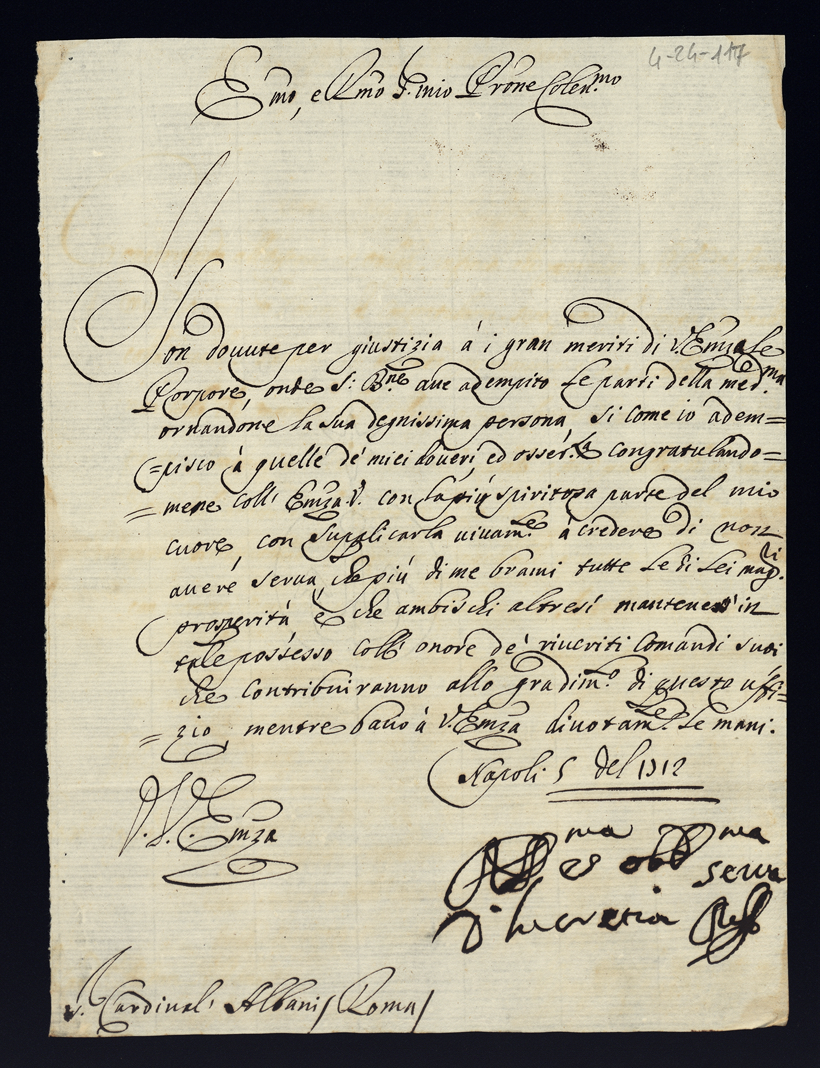 4-24-117
Em̃o, e Rm̃o S. mio Prõne Colen.mo
Son douute per giustizia á i gran meriti di V. Em̃za le
Porpore, onde S: Bne aue adempito le parti della med.ma
ornandone la sua degnissima persona, si come io adem=
=pisco à quelle de' miei doueri, ed osser.za congratulando=
=mene coll' Em̃za V. con la più spiritosa parte del mio
cuore, con supplicarla uiuam.te à credere di non
auere serua, che più di me brami tutte le di Lei mag.ri
prosperità è che ambischi altresì mantener in
tale possesso coll' onore de' riueriti Comandi suoi
che Contribuiranno allo gradim.to di questo uffi=
=zio, mentre bacio à V. Em̃za diuotam.te le mani.
Napoli 5 del 1712
V. Em̃za
ma ma
et obb serua
D. Lucretia
S. Cardinal' Albani / Roma /